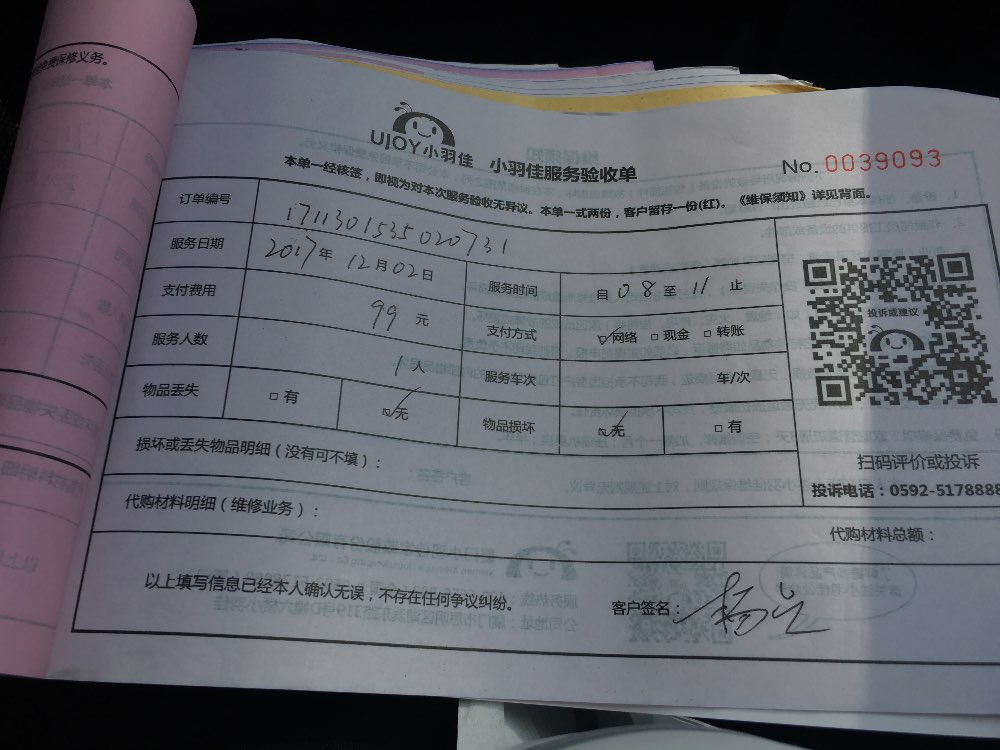 免费保修义务。
UJOY小羽佳 小羽佳服务验收单
No. 0039093
本单一经核签，即视为对本次服务验收无异议。本单一式两份，客户留存一份(红)。《维保须知》详见背面。
订单编号 1711301535020731
服务日期 2017年 12月02日 服务时间 自 08 至 11 止
支付费用 99 元 支付方式 ☑网络 □现金 □转账
服务人数 1人 服务车次 车/次
物品丢失 □有 ☑无 物品损坏 ☑无 □有
投诉或建议
损坏或丢失物品明细（没有可不填）：
扫码评价或投诉
投诉电话：0592-5178888
代购材料明细（维修业务）：
代购材料总额：
以上填写信息已经本人确认无误，不存在任何争议纠纷。 客户签名：